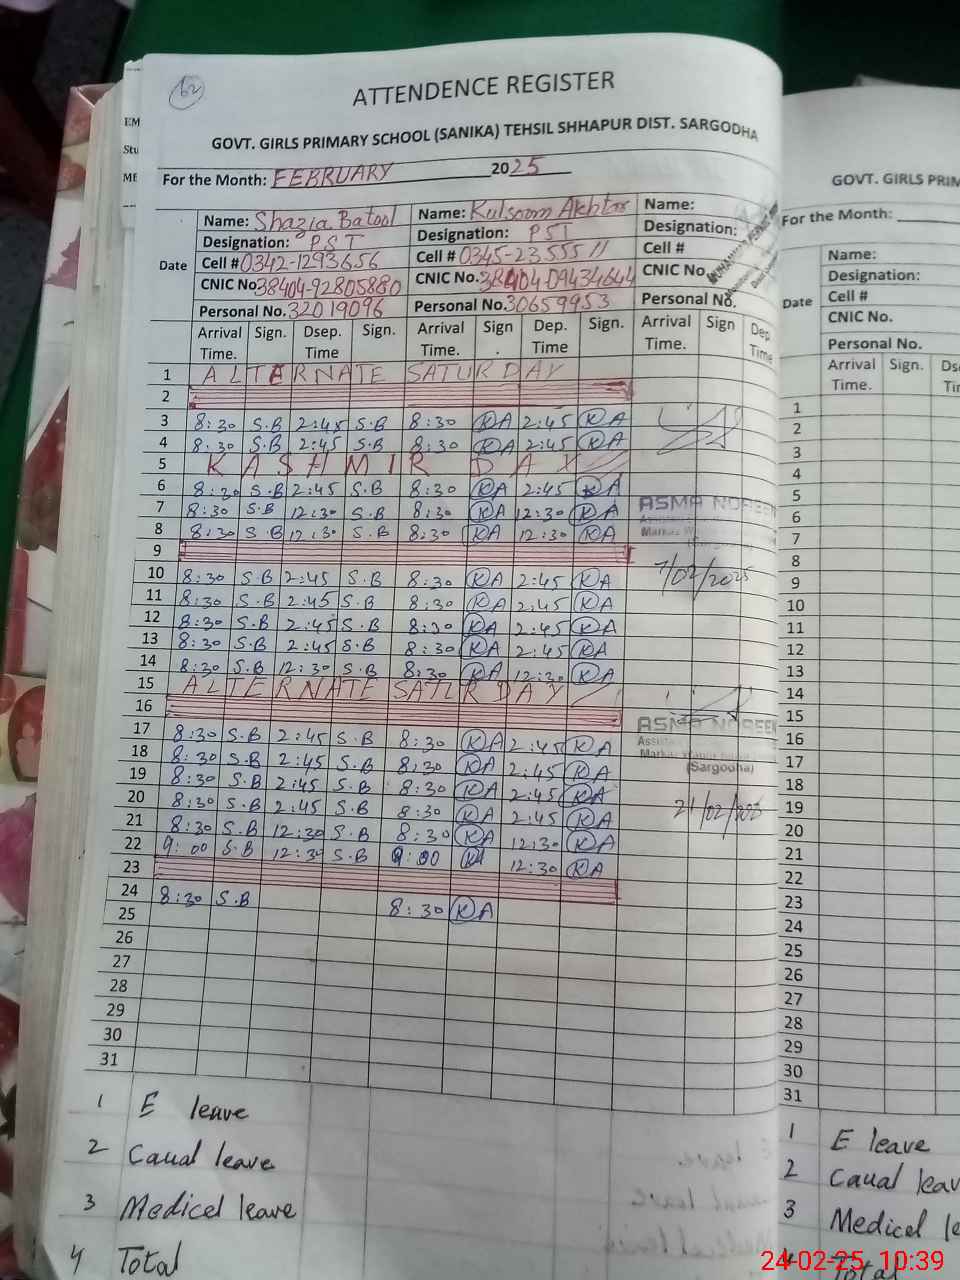 62
ATTENDENCE REGISTER
GOVT. GIRLS PRIMARY SCHOOL (SANIKA) TEHSIL SHHAPUR DIST. SARGODHA
For the Month: FEBRUARY 2025
Date
Name: Shazia Batool Name: Kulsoom Akhtar Name:
Designation: PST Designation: PST Designation:
Cell # 0342-1293656 Cell # 0345-2355511 Cell #
CNIC No. 38404-92805880 CNIC No. 38404-09434644 CNIC No.
Personal No. 32019096 Personal No. 30659953 Personal No.
Arrival Time. Sign. Dsep. Time Sign. Arrival Time. Sign. Dep. Time Sign. Arrival Time. Sign Dep. Time
1 ALTERNATE SATURDAY
2
3 8:30 S.B 2:45 S.B 8:30 KA 2:45 KA
4 8:30 S.B 2:45 S.B 8:30 KA 2:45 KA
5 KASHMIR DAY
6 8:30 S.B 2:45 S.B 8:30 KA 2:45 KA
7 8:30 S.B 12:30 S.B 8:30 KA 12:30 KA
8 8:30 S.B 12:30 S.B 8:30 KA 12:30 KA
9
10 8:30 S.B 2:45 S.B 8:30 KA 2:45 KA
11 8:30 S.B 2:45 S.B 8:30 KA 2:45 KA
12 8:30 S.B 2:45 S.B 8:30 KA 2:45 KA
13 8:30 S.B 2:45 S.B 8:30 KA 2:45 KA
14 8:30 S.B 12:30 S.B 8:30 KA 12:30 KA
15 ALTERNATE SATURDAY
16
17 8:30 S.B 2:45 S.B 8:30 KA 2:45 KA
18 8:30 S.B 2:45 S.B 8:30 KA 2:45 KA
19 8:30 S.B 2:45 S.B 8:30 KA 2:45 KA
20 8:30 S.B 2:45 S.B 8:30 KA 2:45 KA
21 8:30 S.B 12:30 S.B 8:30 KA 12:30 KA
22 9:00 S.B 12:30 S.B 9:00 KA 12:30 KA
23
24 8:30 S.B 8:30 KA
25
26
27
28
29
30
31
ASMA NOREEN
(Sargodha)
7/02/2025
ASMA NOREEN
(Sargodha)
21/02/2025
1 E leave
2 Caual leave
3 Medicel leave
4 Total
EM
Stu
ME
GOVT. GIRLS PRIM
For the Month:
Date
Name:
Designation:
Cell #
CNIC No.
Personal No.
Arrival Time. Sign. Ds Tir
1
2
3
4
5
6
7
8
9
10
11
12
13
14
15
16
17
18
19
20
21
22
23
24
25
26
27
28
29
30
31
1 E leave
2 Caual leav
3 Medicel le
4 Total
24-02-25 10:39